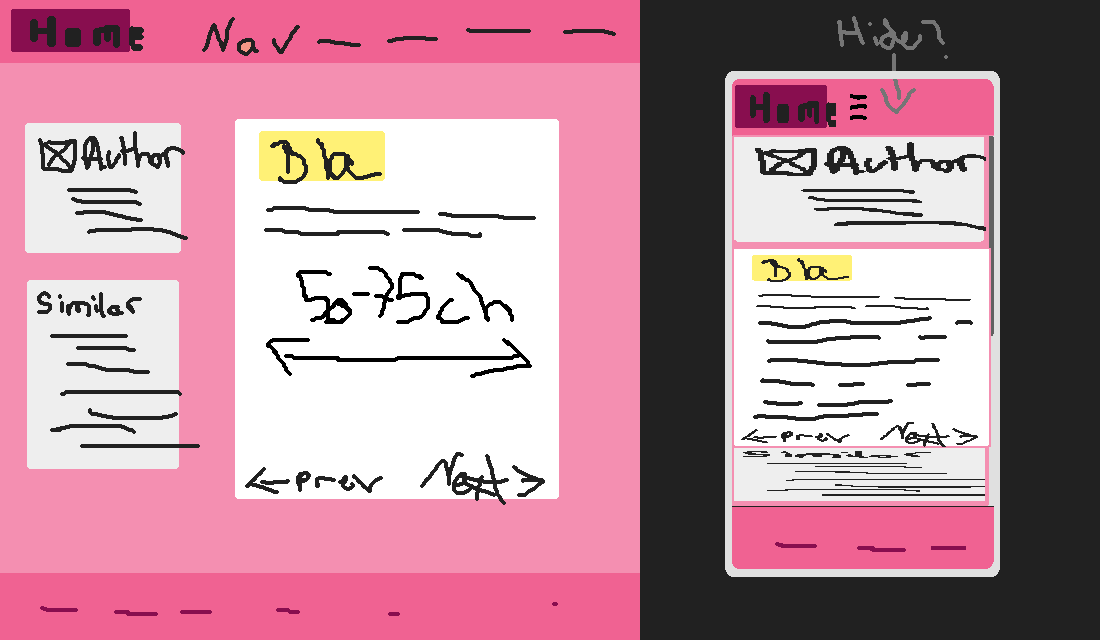 Home Nav
Author
Similar
Bla
50-75ch
<- prev Next ->
Hide?
Home
Author
Bla
<- prev Next ->
Similar